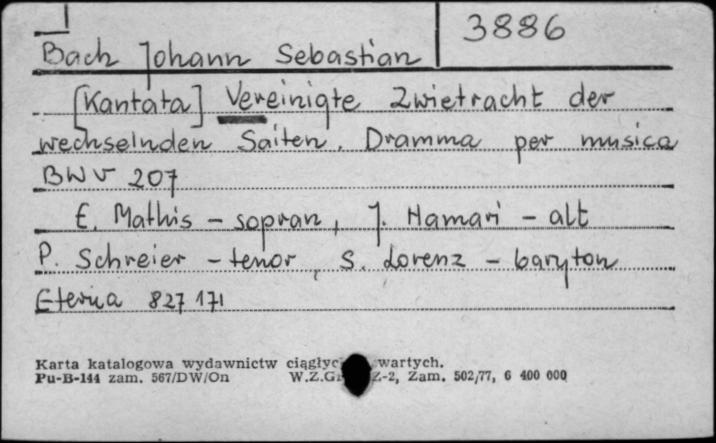 3886
Bach Johann Sebastian
[Kantata] Vereinigte Zwietracht der
wechselnden Saiten. Dramma per musica
BWV 207
E. Mathis - sopran, J. Hamari - alt
P. Schreier - tenor, S. Lorenz - baryton
Eterna 827 171
Karta katalogowa wydawnictw
Pu-B-144 zam. 567/DW/On Zam. 502/77, 6 400 000